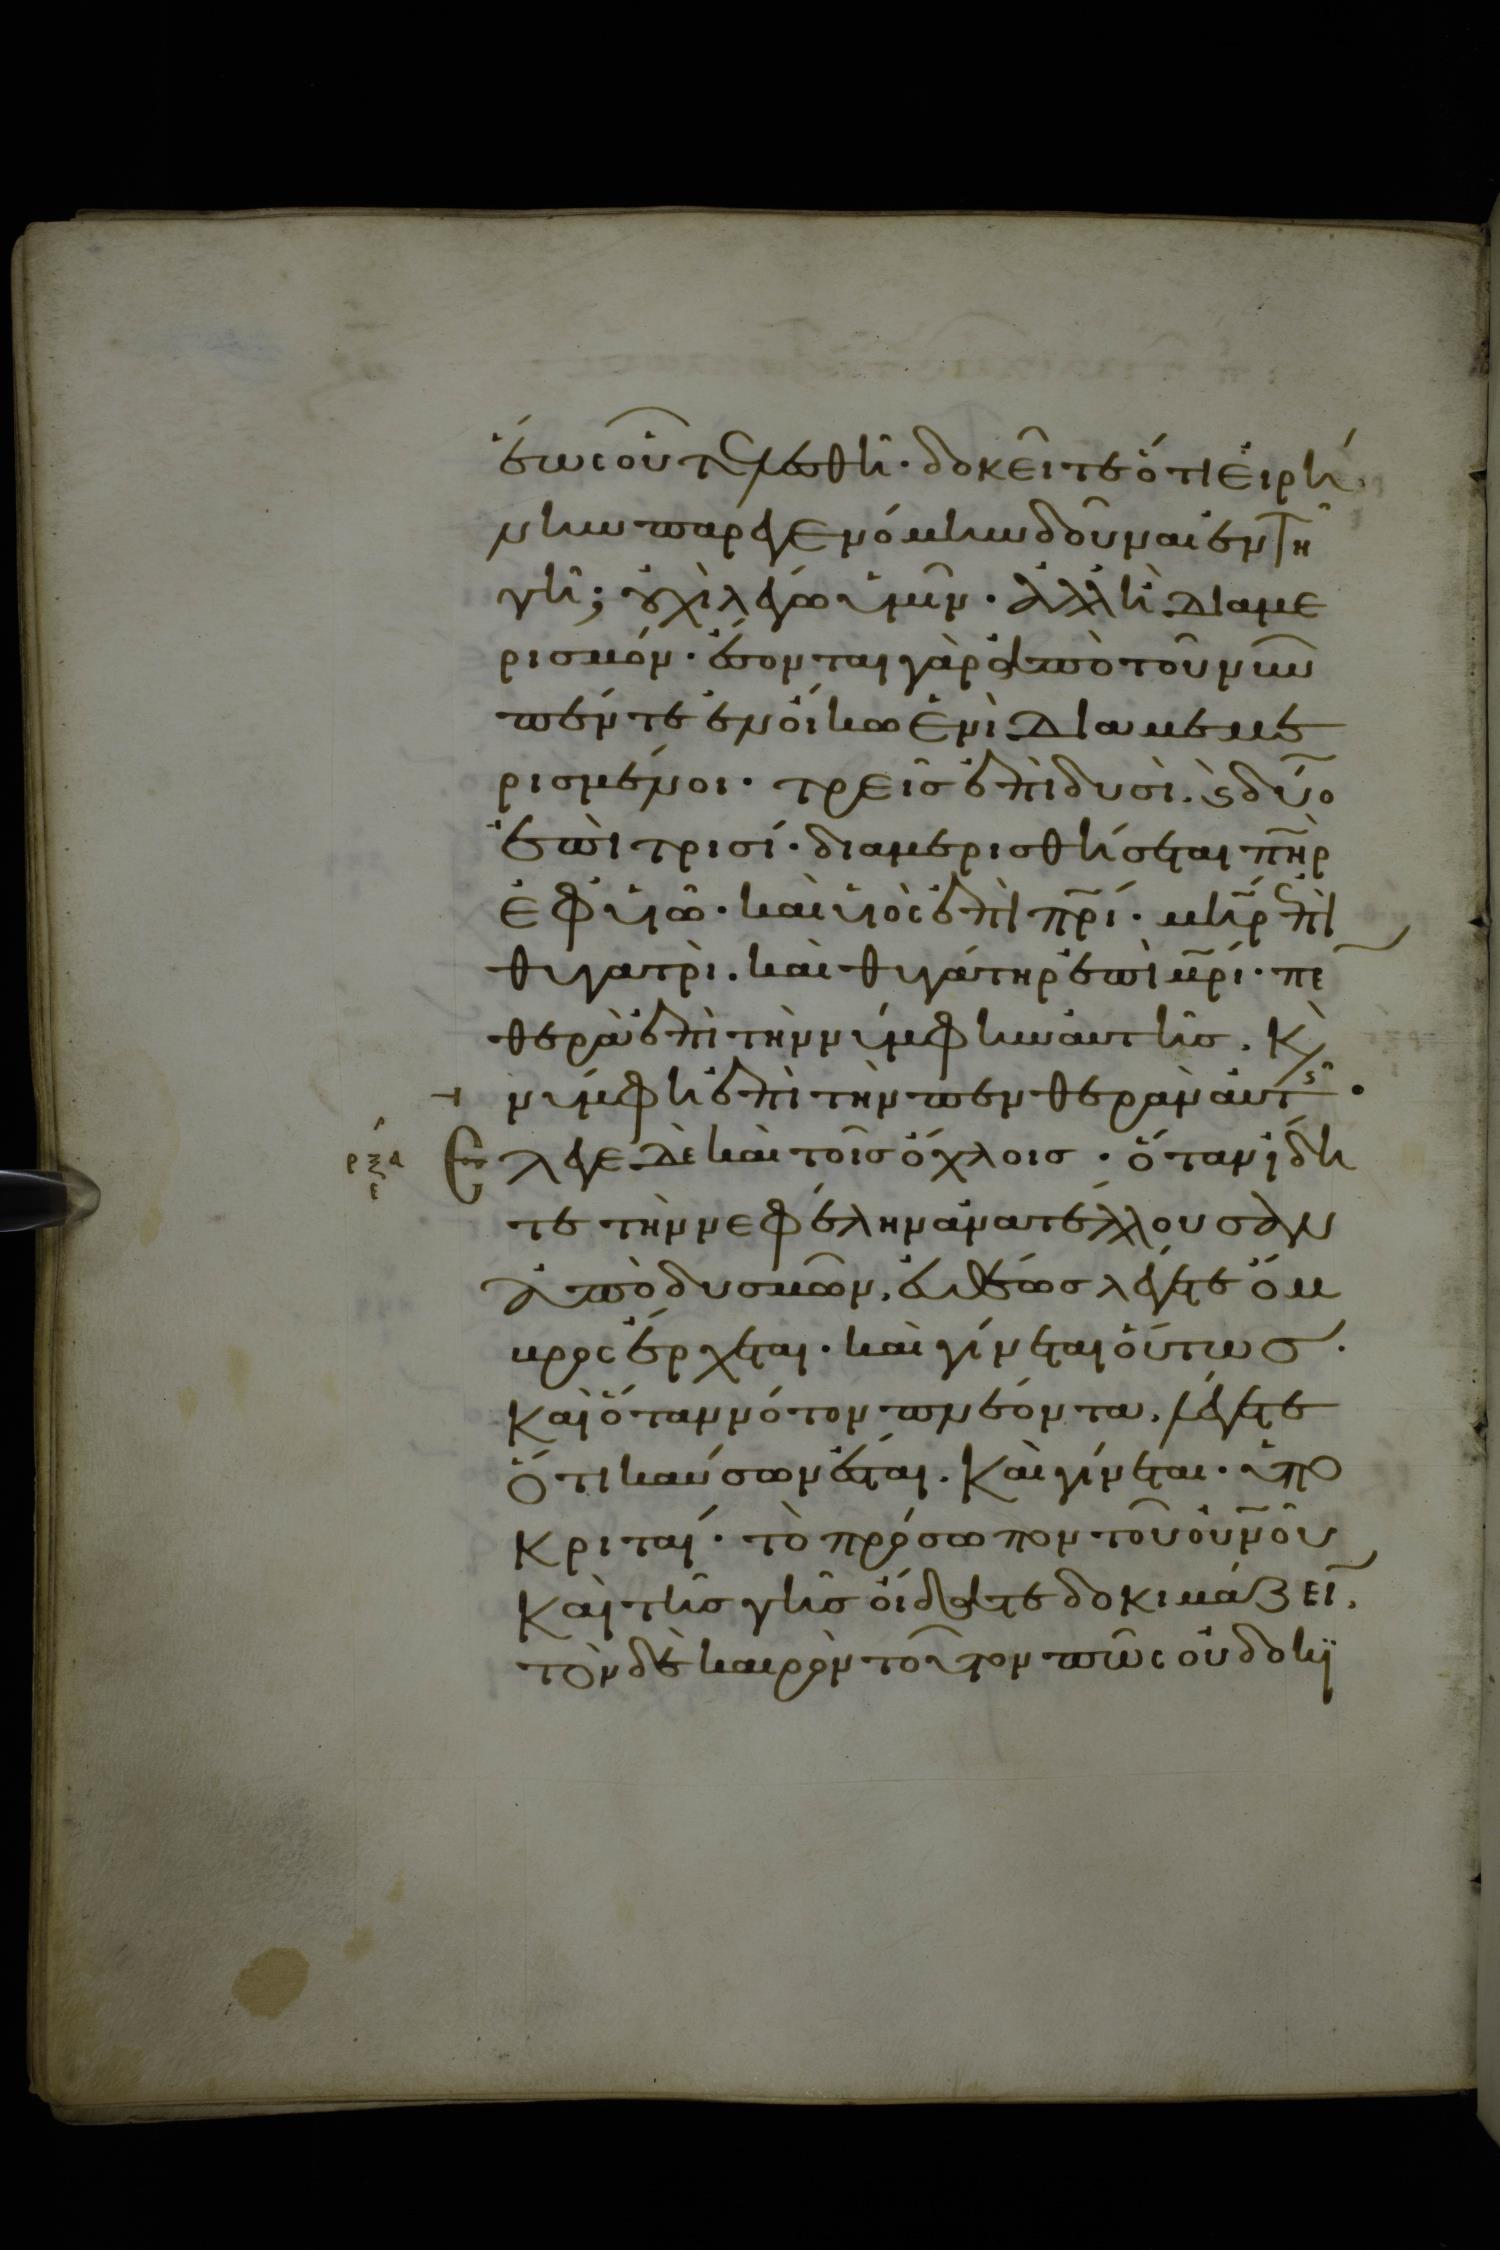 ἕως οὗ τελεσθῆ· δοκεῖτε ὅτι εἰρή
νην παρεγενόμην δοῦναι ἐν τῆ
γῆ; οὐχὶ λέγω ὑμῖν· ἀλλ' ἢ διαμε
ρισμόν· ἔσονται γὰρ ἀπὸ τοῦ νῦν
πέντε ἐν οἴκω ἑνὶ διαμεμε
ρισμένοι· τρεῖς ἐπὶ δυσὶ. ϗ δύο
ἐπὶ τρισί· διαμερισθήσεται πηρ
ἐφ' υἱῶ· καὶ υἱὸς ἐπὶ πρί· μηρ ἐπὶ
θυγατρὶ. καὶ θυγάτηρ ἐπὶ μρί· πε
θερὰ ἐπὶ τὴν νύμφην αὐτῆς. ϗ
νύμφη ἐπὶ τὴν πενθερὰν αὐτῆς·
ρξα Ἔλεγε δὲ καὶ τοῖς ὄχλοις· ὅταν ἴδη
τε τὴν νεφέλην ἀνατέλλουσαν
ἀπὸ δυσμῶν. εὐθέως λέγετε ὄμ
βρος ἔρχεται· καὶ γίνεται οὕτως.
Καὶ ὅταν νότον πνέοντα. λέγετε
ὅτι καύσων ἔσται. Καὶ γίνεται· ὑπο
κριταί· τὸ πρόσωπον τοῦ οὐνοῦ
Καὶ τῆς γῆς οἴδατε δοκιμάζειν.
τὸν δὲ καιρὸν τοῦτον πῶς οὐ δοκι